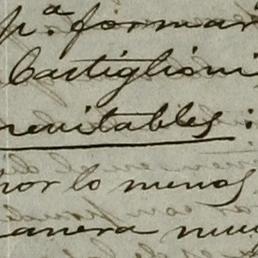 pª. formar
Castiglioni
nevitables :
por lo menos
anera muy